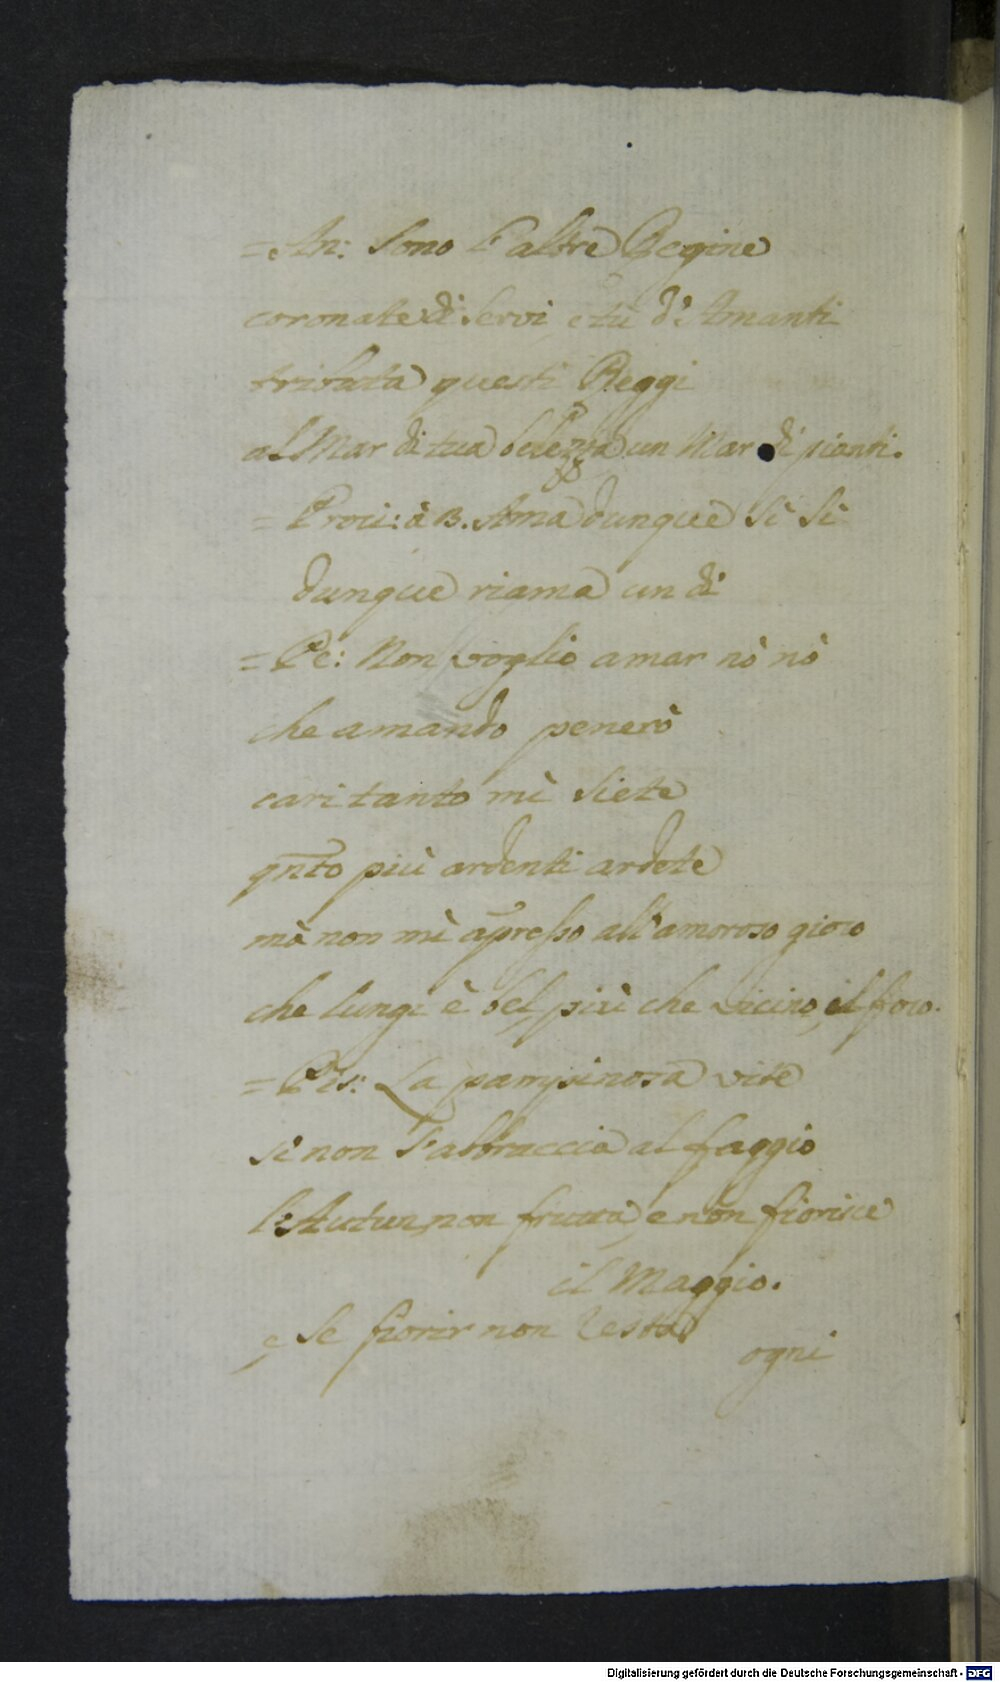 = An: Sono l'altre Regine
coronate di servi, e tu d'Amanti
tributa questi Reggi
al Mar di tua belezza un Mar di pianti.
= Proci: à 3. Ama dunque sì sì
dunque riama un dì
= Pe: Non voglio amar nò nò
che amando penerò
cari tanto mi siete
qnto più ardenti ardete
mà non mì apresso all'amoroso gioco
che lungi è bel più che vicino il foco.
= Pis: La pampinosa vite
se non l'abbraccia al faggio
l'Autun non frutta, e non fiorisce
il Maggio.
e se fiorir non resta
ogni
Digitalisierung gefördert durch die Deutsche Forschungsgemeinschaft - DFG